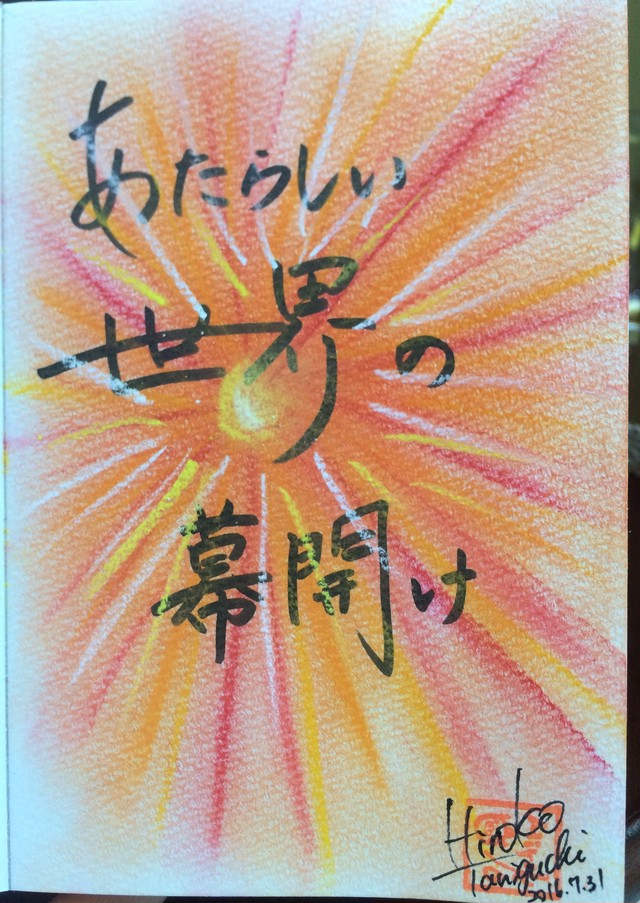 あたらしい
世界の
幕開け
Hiroko
Taniguchi
2016.7.31